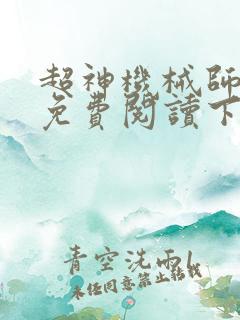 超神機械師
免費閱讀下
青空洗雨
未经同意禁止转载